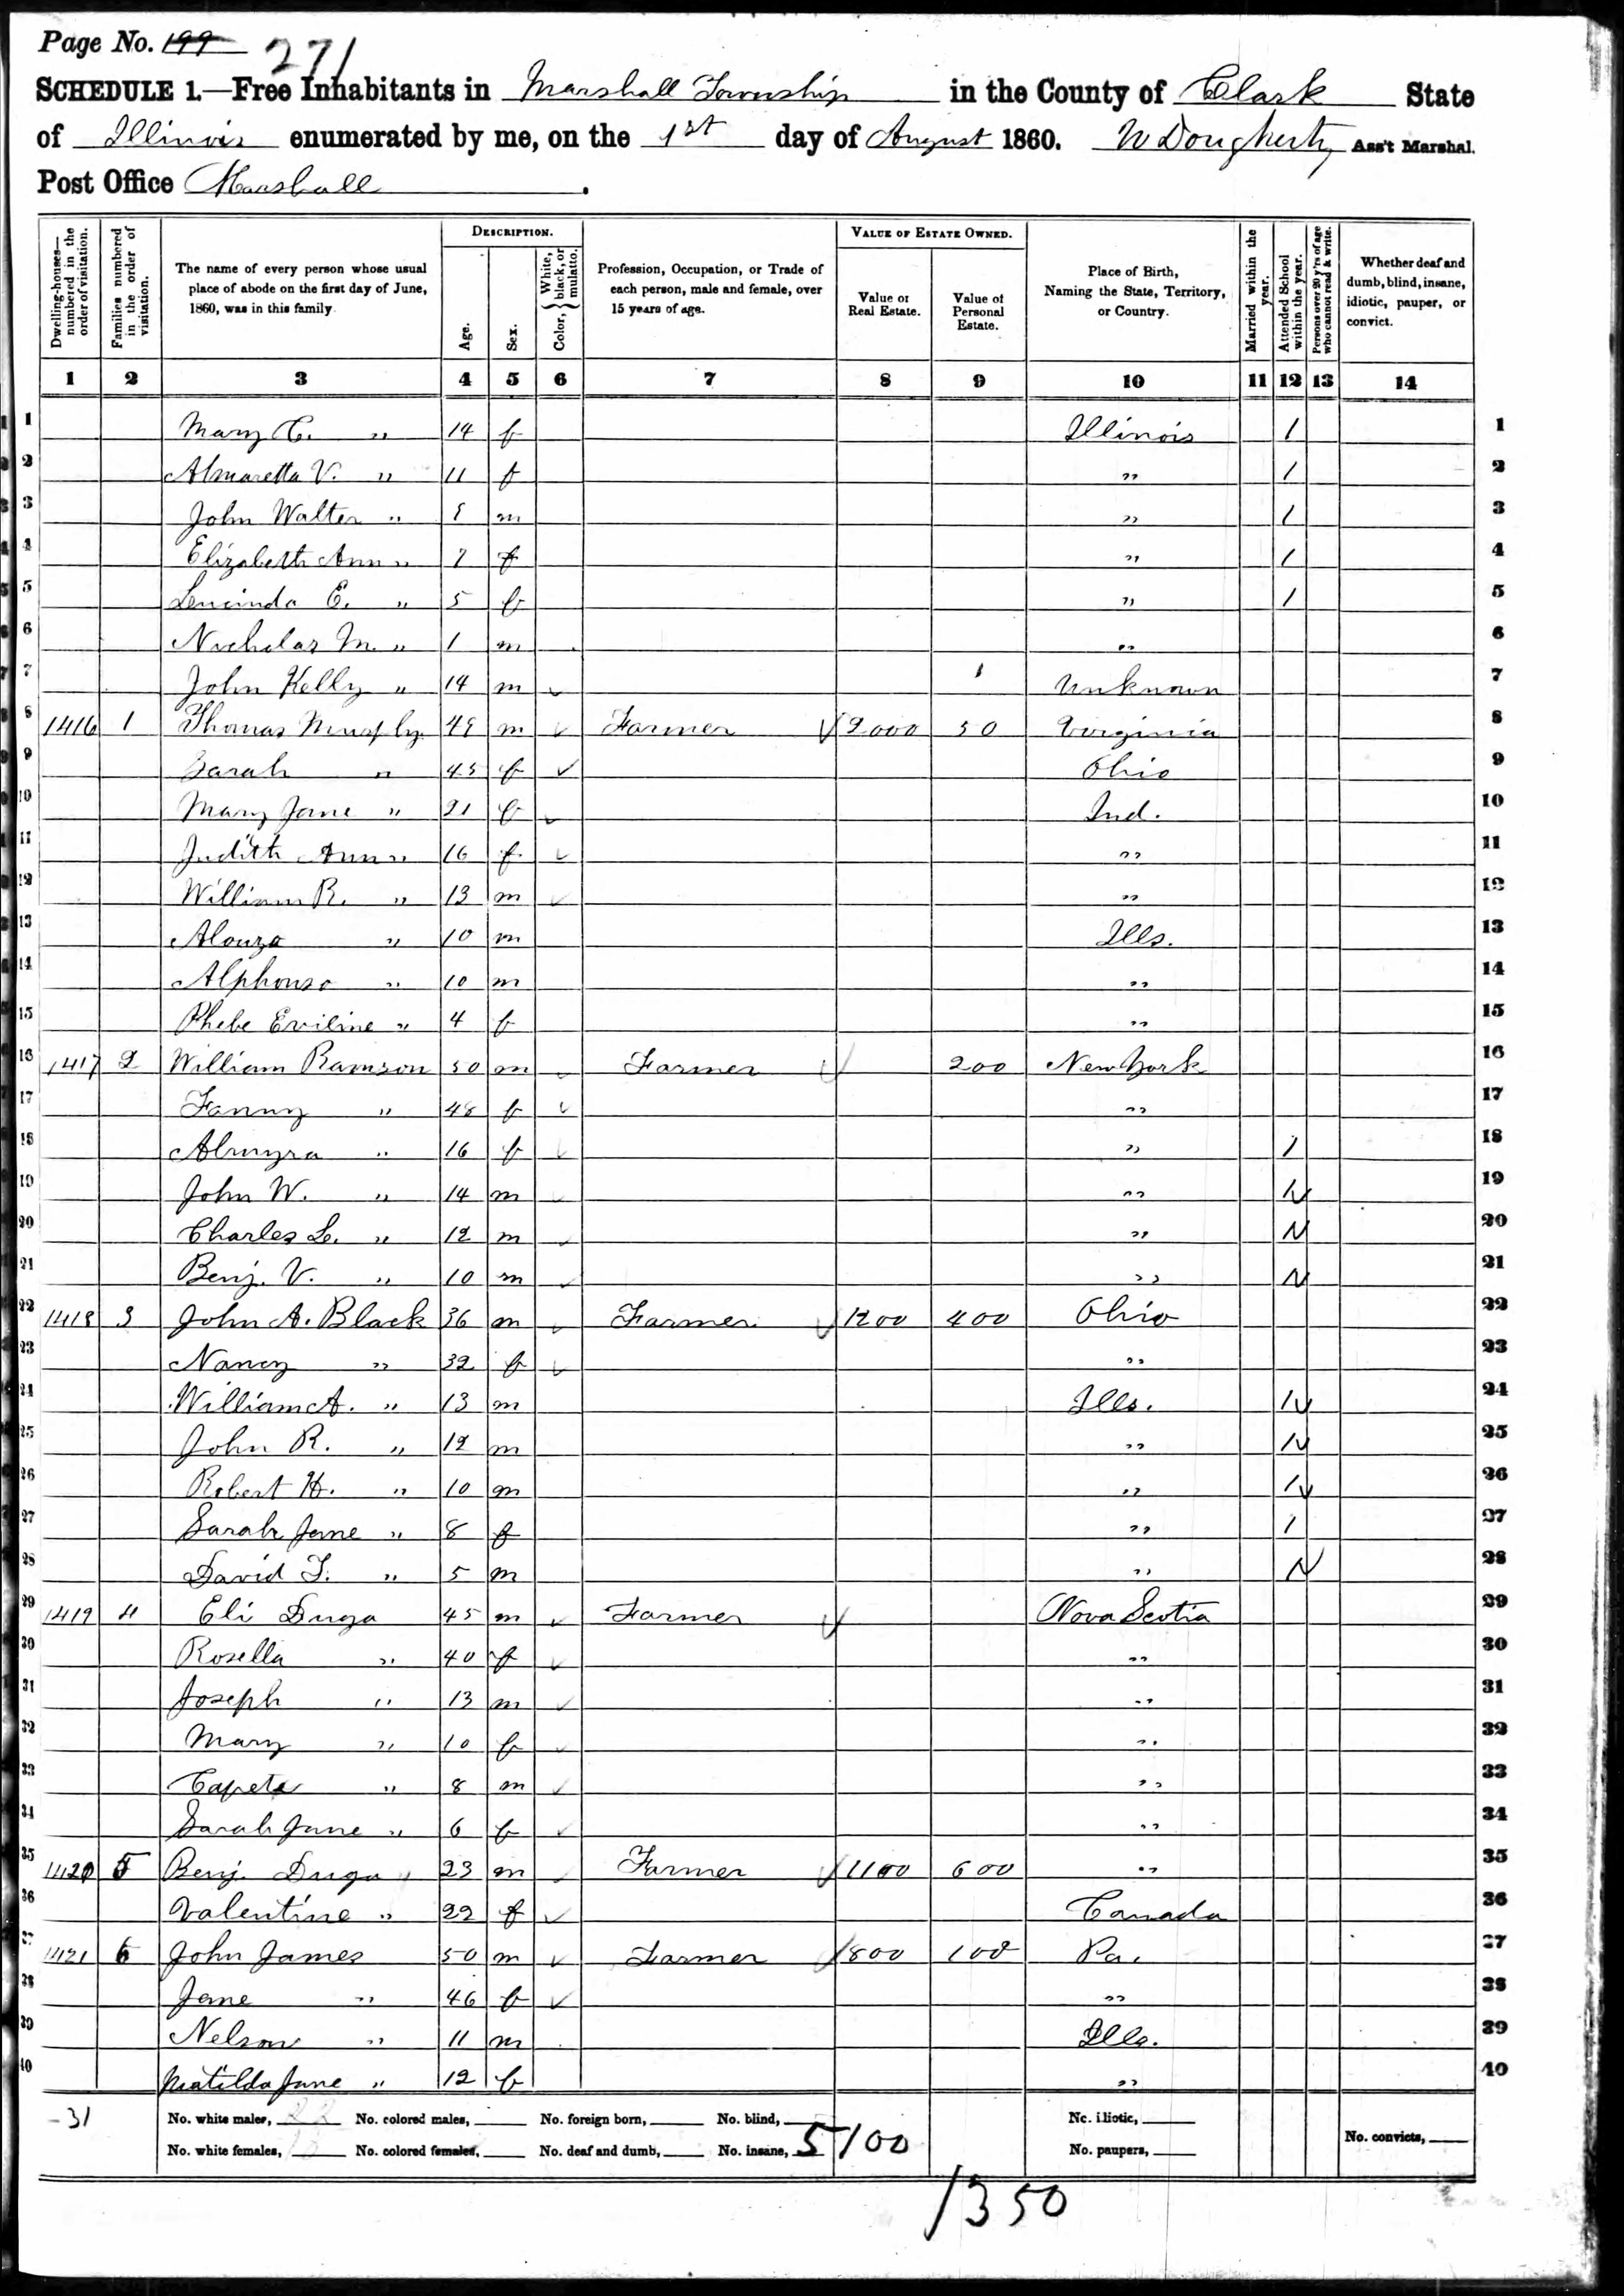 Page No. 199 271
SCHEDULE 1.—Free Inhabitants in Marshall Township in the County of Clark State
of Illinois enumerated by me, on the 1st day of August 1860. W Dougherty Ass't Marshal.
Post Office Marshall.
Dwelling-houses—numbered in the order of visitation. Families numbered in the order of visitation. The name of every person whose usual place of abode on the first day of June, 1860, was in this family DESCRIPTION. Age. Sex. Color, { White, black, or mulatto. Profession, Occupation, or Trade of each person, male and female, over 15 years of age. VALUE OF ESTATE OWNED. Value of Real Estate. Value of Personal Estate. Place of Birth, Naming the State, Territory, or Country. Married within the year. Attended School within the year. Persons over 20 y'rs of age who cannot read & write. Whether deaf and dumb, blind, insane, idiotic, pauper, or convict.
1 2 3 4 5 6 7 8 9 10 11 12 13 14
1 Mary C. " 14 f Illinois / 1
2 Almaretta V. " 11 f " / 2
3 John Walter " m " / 3
4 Elizabeth Ann " 7 f " / 4
5 Lucinda E. " 5 f " / 5
6 Nicholas M. " 1 m " 6
7 John Kelly " 14 m Unknown 7
8 1416 1 Thomas Murphy m Farmer 2000 50 Virginia 8
9 Sarah " 45 f Ohio 9
10 Mary Jane " 21 f Ind. 10
11 Judith Ann " 16 f " 11
12 William R. " 13 m " 12
13 Alonzo " 10 m Ills. 13
14 Alphonso " 10 m " 14
15 Phebe Eviline " 4 f " 15
16 1417 2 William Ramson 50 m Farmer 200 New York 16
17 Fanny " 48 f " 17
18 Almyra " 16 f " / 18
19 John W. " 14 m " / 19
20 Charles L. " 12 m " / 20
21 Benj. V. " 10 m " / 21
22 1418 3 John A. Black 36 m Farmer 1200 400 Ohio 22
23 Nancy " 32 f " 23
24 William A. " 13 m Ills. / 24
25 John R. " 12 m " / 25
26 Robert H. " 10 m " / 26
27 Sarah Jane " 8 f " / 27
28 David T. " 5 m " / 28
29 1419 4 Eli Duga 45 m Farmer Nova Scotia 29
30 Rosella " 40 f " 30
31 Joseph " 13 m " 31
32 Mary " 10 f " 32
33 " 8 m " 33
34 Sarah Jane " 6 f " 34
35 1420 5 Benj. Duga 23 m Farmer 1100 600 " 35
36 Valentine " 22 f Canada 36
37 1421 6 John James 50 m Farmer 800 100 Pa. 37
38 Jane " 46 f " 38
39 Nelson " 11 m Ills. 39
40 Matilda Jane " 12 f " 40
-31 No. white males, No. colored males, No. foreign born, No. blind, No. idiotic,
No. white females, No. colored females, No. deaf and dumb, No. insane, 5100 No. paupers, No. convicts,
1350